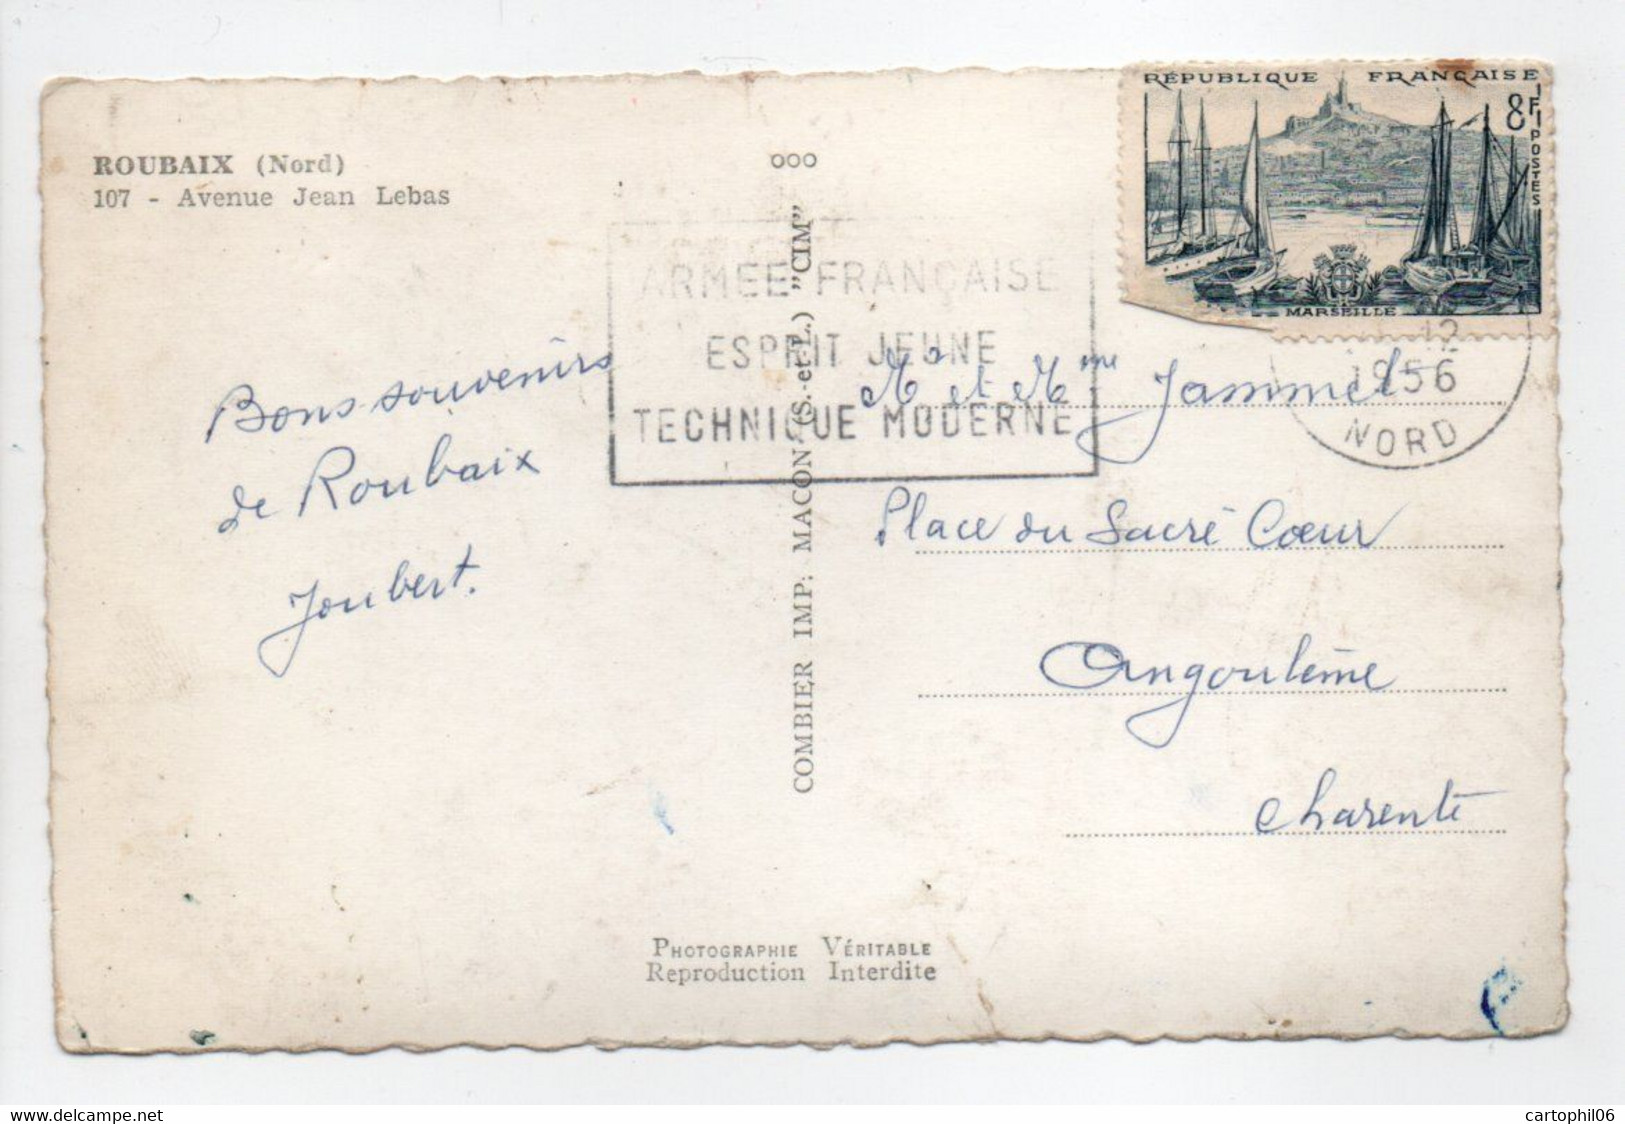 RÉPUBLIQUE FRANÇAISE
8F
POSTES
MARSEILLE
ROUBAIX (Nord)
107 - Avenue Jean Lebas
ooo
ARMEE FRANÇAISE
ESPRIT JEUNE
TECHNIQUE MODERNE
12
1956
NORD
COMBIER IMP. MACON (S.-et-L.) "CIM"
Bons souvenirs
de Roubaix
Joubert.
Mr et Mme Jammet
Place du Sacré Cœur
Angoulême
Charente
PHOTOGRAPHIE VÉRITABLE
Reproduction Interdite
www.delcampe.net
cartophil06